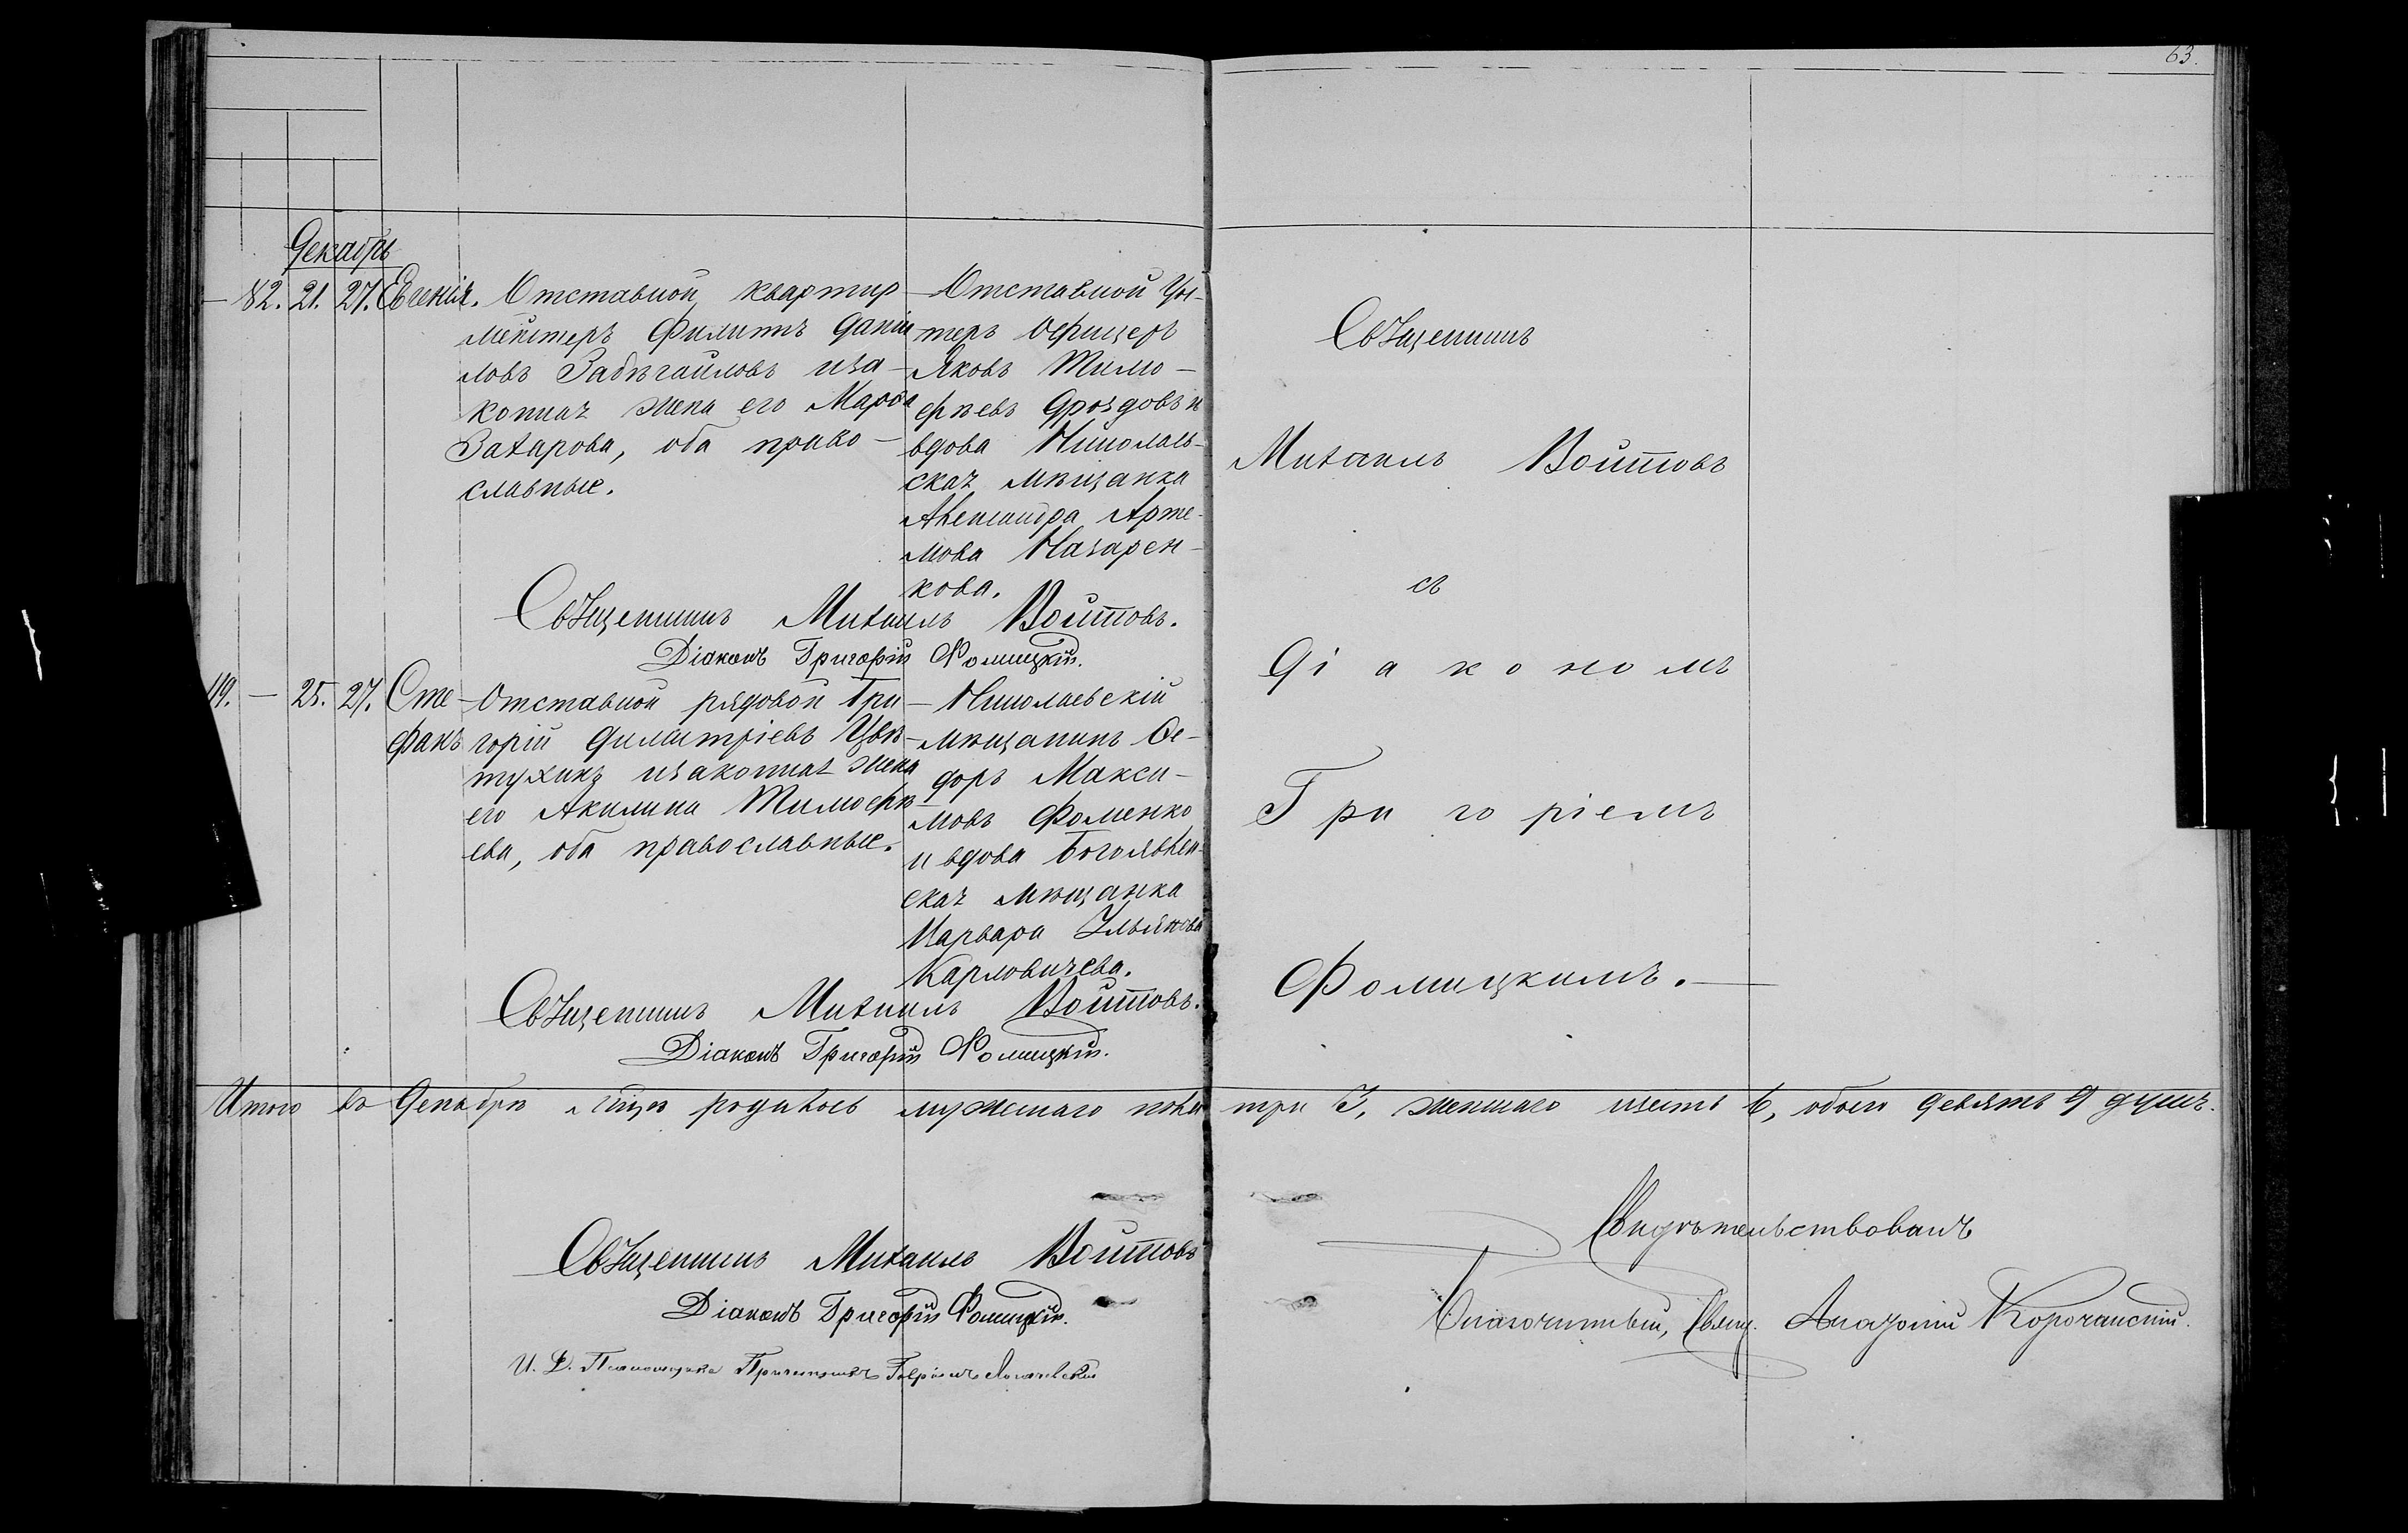 63.
Декабрь
— 82. 21. 27. Евгенія.
Отставной квартир
мейстеръ Филиппъ Даніи
ловъ Забѣгайловъ иза
конная жена его Марѳа
Захарова, оба право-
славные.
Отставной Ун-
теръ Офицеръ
Яковъ Тимо-
ѳеевъ Дроздовъ и
вдова Николаев-
ская мѣщанка
Александра Арте-
мова Назарен-
кова.
Священникъ Михаилъ Войтовъ.
Діаконъ Григорій Фомицкій.
49. — 25. 27. Сте-
фанъ
Отставной рядовой Гри-
горій Димитріевъ Цвѣ-
тухинъ изаконная жена
его Акилина Тимоѳѣ-
ева, оба православные.
Николаевскій
мѣщанинъ Ѳе-
доръ Макси-
мовъ Фоменко
и вдова Боголюбен-
ская мѣщанка
Варвара Ульянова
Карловичева.
Священникъ Михаилъ Войтовъ.
Діаконъ Григорій Фомицкій.
Священникъ
Михаилъ Войтовъ
съ
Діакономъ
Григоріемъ
Фомицкимъ.
Итого въ Декабрѣ мѣсяцѣ родилось мужескаго пола три 3, женскаго шесть 6, обоего девять 9 душъ.
Священникъ Михаилъ Войтовъ
Діаконъ Григорій Фомицкій.
И. Д. Псаломщика Гавріилъ
Свидѣтельствовалъ
Благочинный, Свящ. Анатолій Корочанскій.